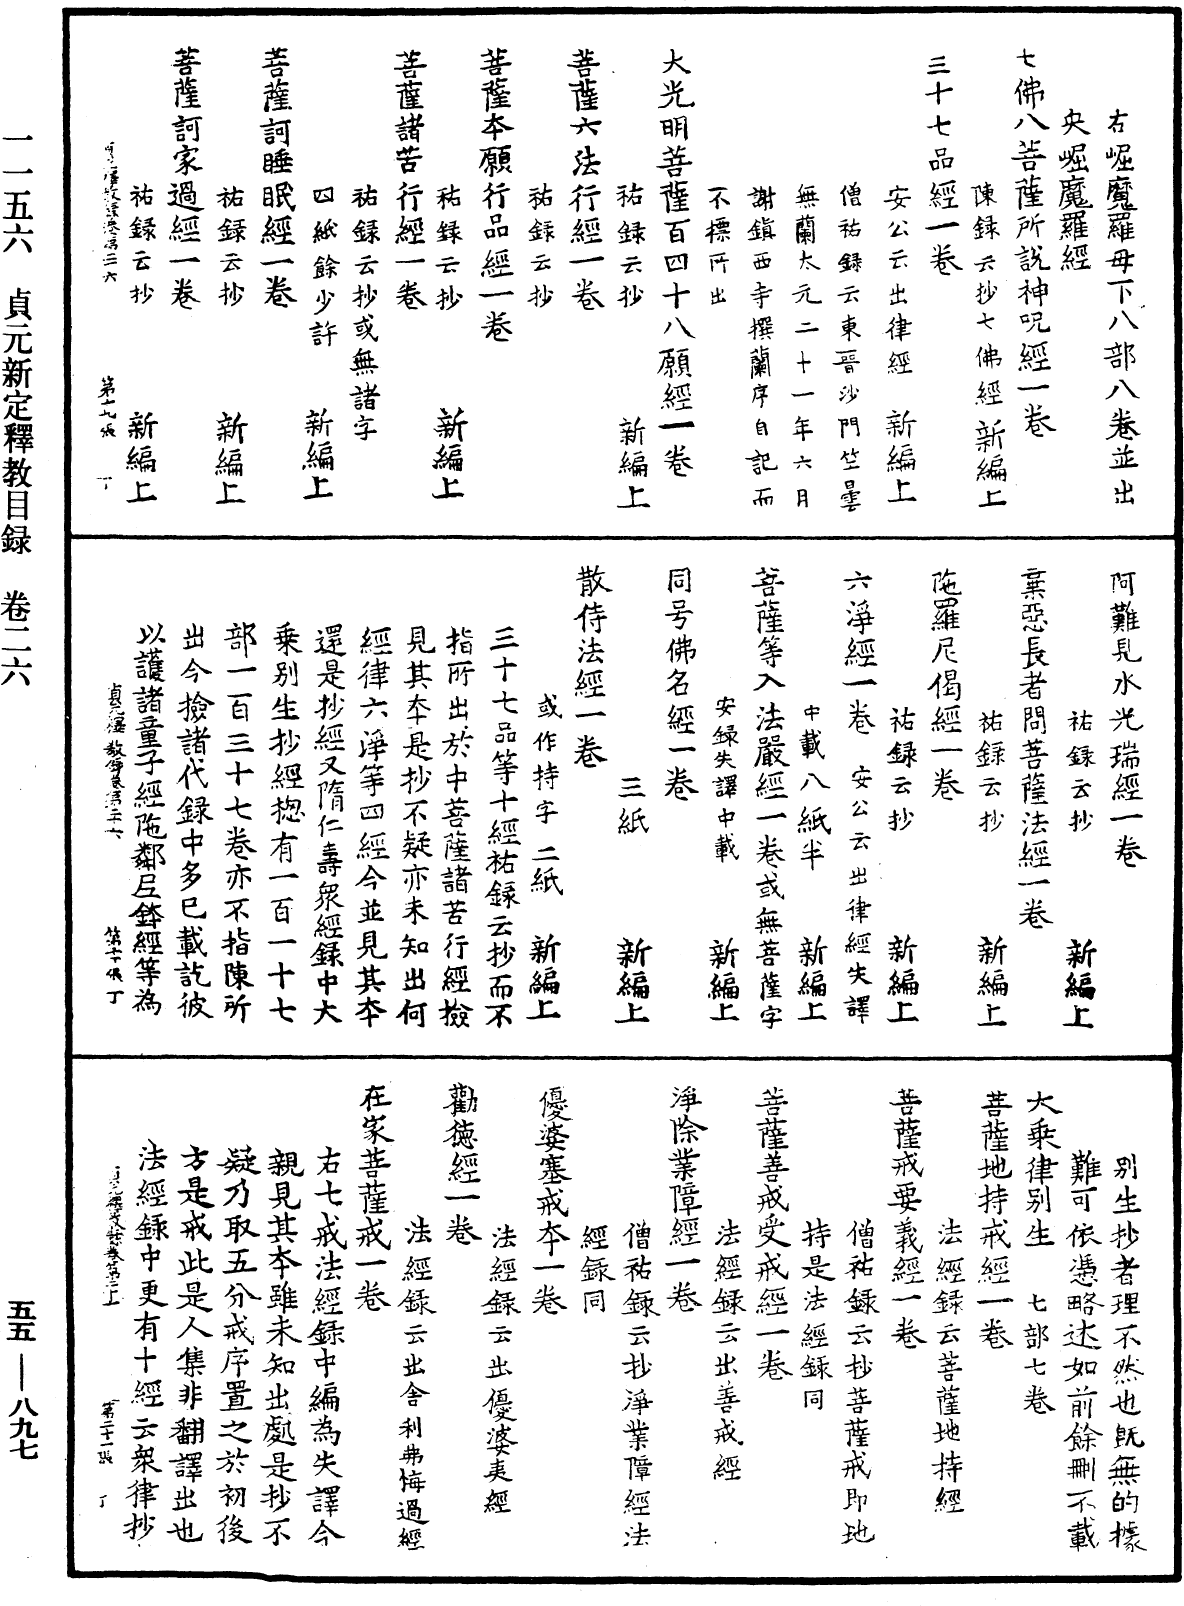 一一五六　貞元新定釋教目録　卷二六
五五—八九七
右崛魔羅母下八部八卷並出
央崛魔羅經
七佛八菩薩所説神呪經一卷
陳録云抄七佛經　新編上
三十七品經一卷
安公云出律經　新編上
僧祐録云東晉沙門竺曇
無蘭太元二十一年六月
謝鎮西寺撰蘭序自記而
不標所出
大光明菩薩百四十八願經一卷
祐録云抄　新編上
菩薩六法行經一卷
祐録云抄
菩薩本願行品經一卷
祐録云抄　新編上
菩薩諸苦行經一卷
祐録云抄或無諸字
四紙餘少許　新編上
菩薩訶睡眠經一卷
祐録云抄　新編上
菩薩訶家過經一卷
祐録云抄　新編上
第十九張　丁
阿難見水光瑞經一卷
祐録云抄　新編上
棄惡長者問菩薩法經一卷
祐録云抄　新編上
陁羅尼偈經一卷
祐録云抄　新編上
六淨經一卷　安公云出律經失譯
中載八紙半　新編上
菩薩等入法嚴經一卷或無菩薩字
安録失譯中載　新編上
同号佛名經一卷
三紙　新編上
散侍法經一卷
或作持字二紙　新編上
三十七品等十經祐録云抄而不
指所出於中菩薩諸苦行經撿
見其本是抄不疑亦未知出何
經律六淨等四經今並見其本
還是抄經又隋仁壽衆經録中大
乘别生抄經揔有一百一十七
部一百三十七卷亦不指陳所
出今撿諸代録中多已載訖彼
以護諸童子經陁鄰尼鉢經等為
貞元釋教録卷第二十六　第二十張　丁
别生抄者理不然也既無的據
難可依憑略述如前餘刪不載
大乘律别生　七部七卷
菩薩地持戒經一卷
法經録云菩薩地持經
菩薩戒要義經一卷
僧祐録云抄菩薩戒即地
持是法經録同
菩薩善戒受戒經一卷
法經録云出善戒經
淨除業障經一卷
僧祐録云抄淨業障經法
經録同
優婆塞戒本一卷
法經録云出優婆夷經
勸德經一卷
法經録云出舍利弗悔過經
在家菩薩戒一卷
右七戒法經録中編為失譯今
親見其本雖未知出處是抄不
疑乃取五分戒序置之於初後
方是戒此是人集非翻譯出也
法經録中更有十經云衆律抄
第二十一張　丁